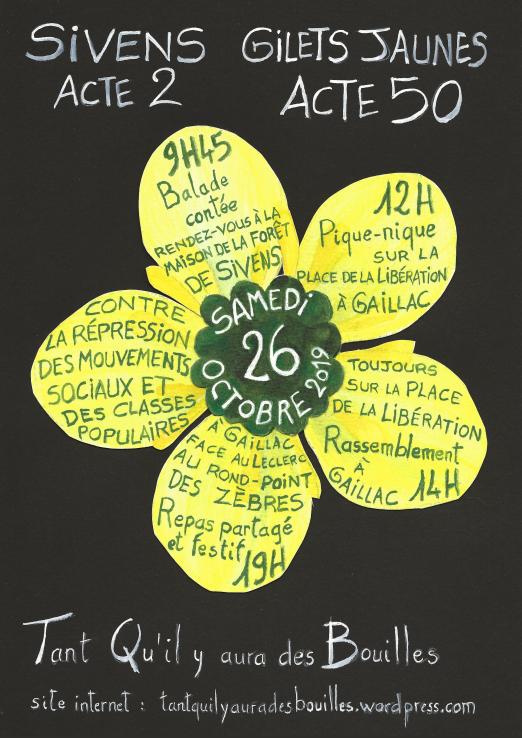 SiVENS GILETS JAUNES
ACTE 2 ACTE 50
9H45
Balade
contée
RENDEZ-VOUS À LA
MAISON DE LA FORÊT
DE SiVENS
12H
Pique-nique
SUR LA
PLACE DE LA LIBÉRATION
À GAILLAC
TOUJOURS
SUR LA PLACE
DE LA LIBÉRATION
Rassemblement
À
GAILLAC 14H
À GAILLAC
FACE AU LECLERC
AU ROND-POINT
DES ZÈBRES
Repas partagé
et festif
19H
CONTRE
LA RÉPRESSION
DES MOUVEMENTS
SOCIAUX ET
DES CLASSES
POPULAIRES
SAMEDi
26
OCTOBRE 2019
Tant Qu'il y aura des Bouilles
site internet : tantquilyauradesbouilles.wordpress.com